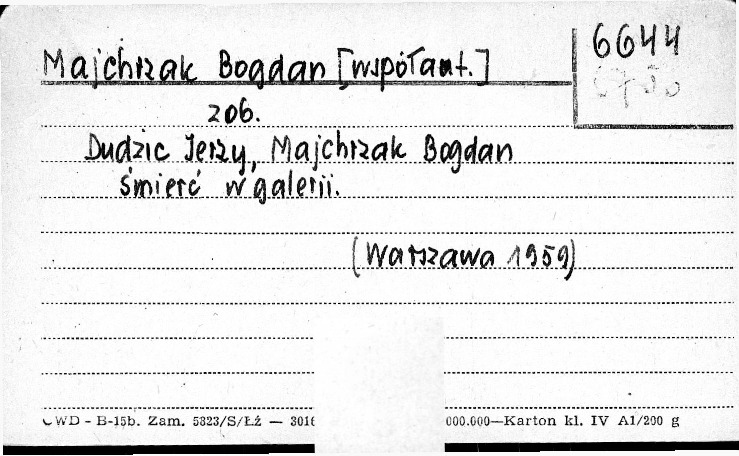 Majchrzak Bogdan [współaut.]
6644
206.
Dudzic Jerzy, Majchrzak Bogdan
śmierć w galerii.
(Warszawa 1959)
WD - B-15b. Zam. 5323/S/Łź — 3016
000.000—Karton kl. IV A1/200 g